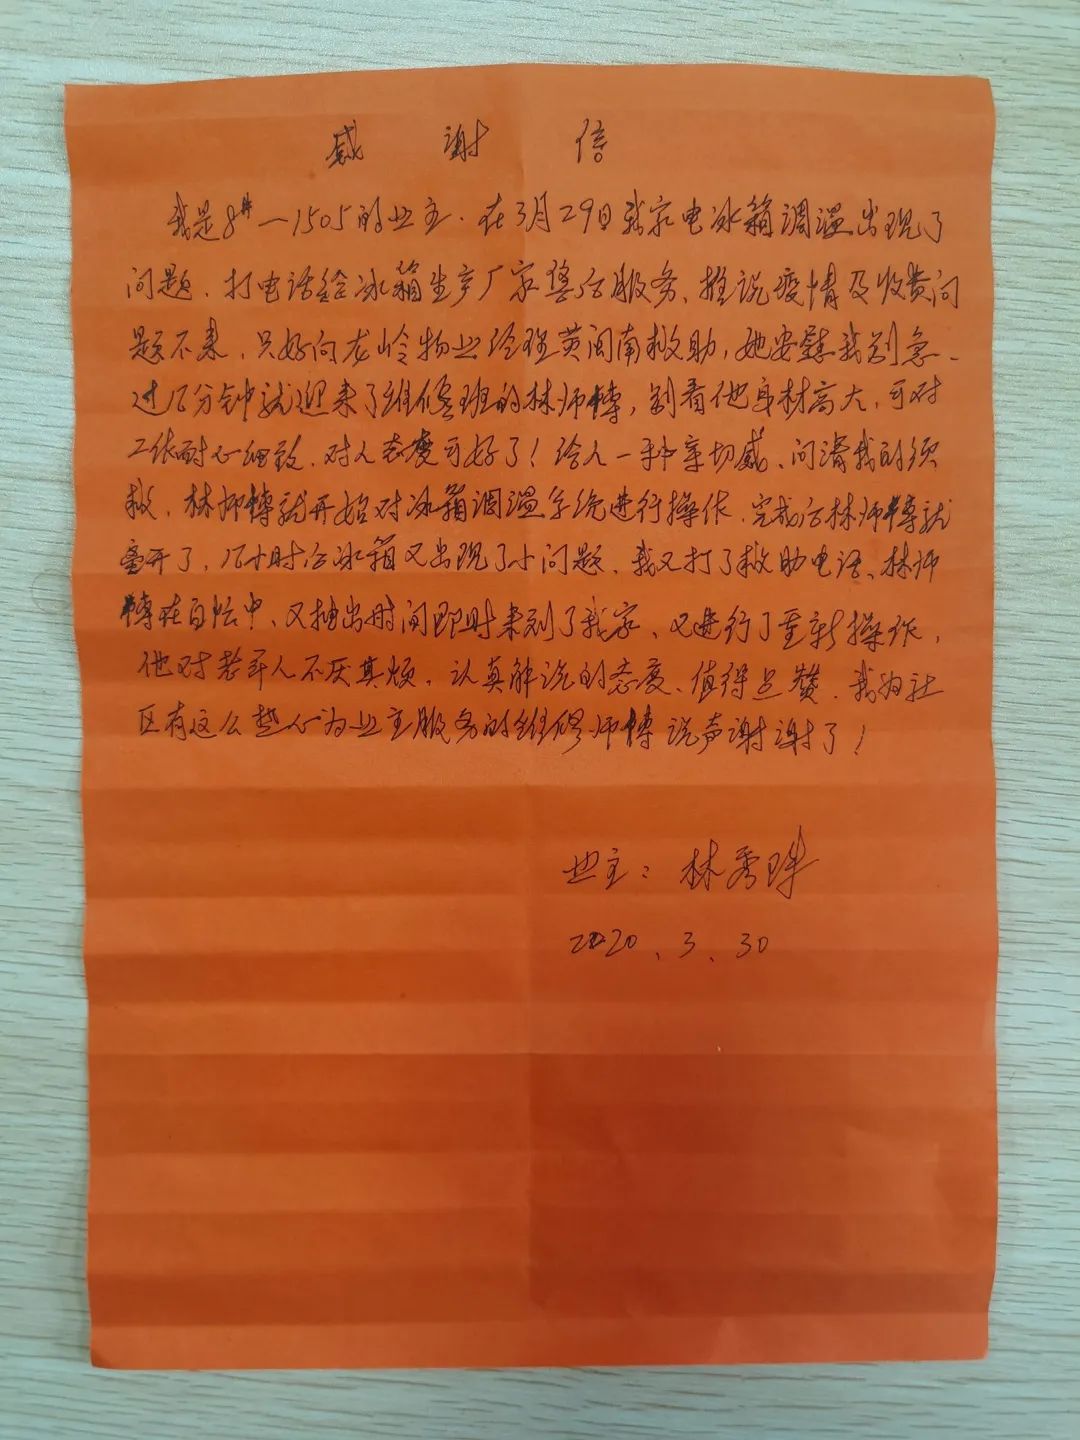 感谢信
我是8#—1505的业主.在3月29日我家电冰箱调温出现了
问题、打电话给冰箱生产厂家售后服务、推说疫情及收费问
题不来,只好向龙岭物业经理黄闽南救助,她安慰我别急、
过几分钟就迎来了维修班的林师傅,别看他身材高大,可对
工作耐心细致、对人态度可好了!给人一种亲切感、问清我的须
救、林师傅就开始对冰箱调温系统进行操作、完成后林师傅就
离开了,几小时后冰箱又出现了小问题、我又打了救助电话、林师
傅在百忙中、又抽出时间即时来到了我家、又进行了重新操作,
他对老年人不厌其烦,认真解说的态度、值得点赞.我为社
区有这么热心为业主服务的维修师傅说声谢谢了!
业主:林秀珠
2020、3、30